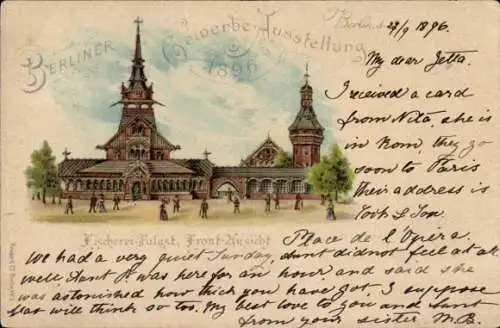 Berliner Gewerbe-Ausstellung
1896
Berlin, 27/9 1896.
My dear Jetta.
I received a card
from Nita, she is
in Rom, they go
soon to Paris
their address is
Place de l'Opéra.
Fischerei-Palast, Front-Ansicht
We had a very quiet Sunday, Aunt did not feel at all
well. Aunt P. was here for an hour and said she
was astonished how thick you have got, I suppose
will think so too. My best love to you and Aunt
from your sister M.B.